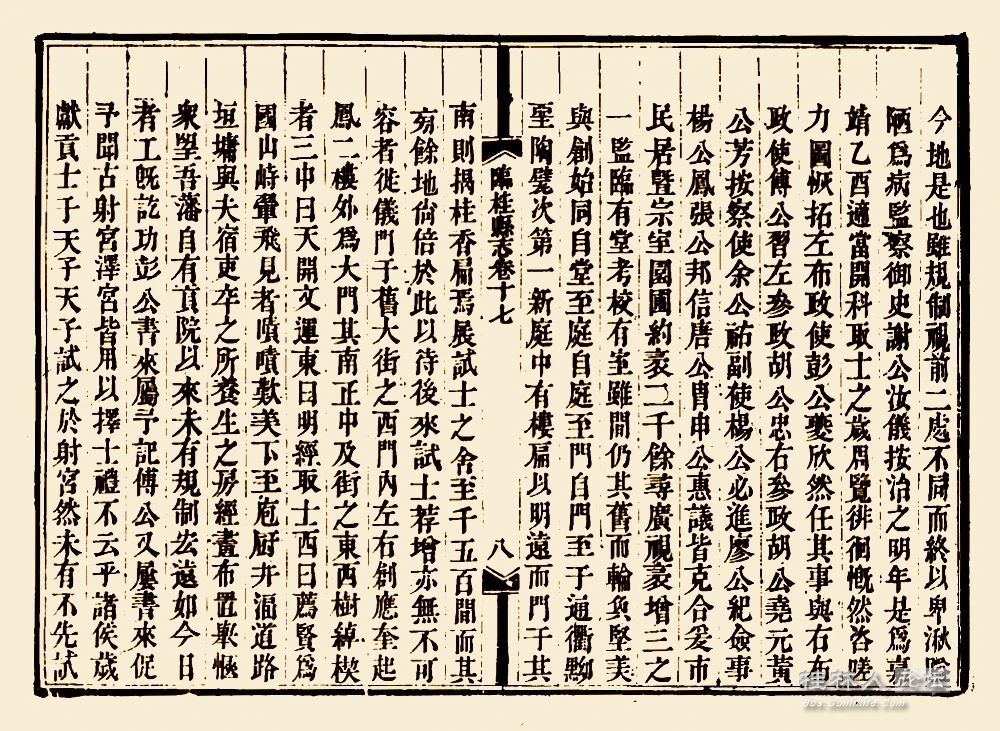 今地是也雖規制視前二處不同而終以卑湫隘
陋為病監察御史謝公汝儀按治之明年是為嘉
靖乙酉適當開科取士之歲周覽徘徊慨然咨嗟
力圖恢拓左布政使彭公夔欣然任其事與右布
政使傅公習左參政胡公忠右參政胡公堯元黃
公芳按察使余公祐副使楊公必進廖公紀僉事
楊公鳳張公邦信唐公胄申公惠議皆克合爰市
民居暨宗室園圃約袤二千餘尋廣視袤增三之
一監臨有堂考校有室雖間仍其舊而輪奐堅美
與創始同自堂至庭自庭至門自門至于通衢黝
堊陶甓次第一新庭中有樓扁以明遠而門于其
臨桂縣志卷十七
八
南則揭桂香扁焉展試士之舍至千五百間而其
旁餘地尙倍於此以待後來試士荐增亦無不可
容者徙儀門于舊大街之西門內左右創應奎起
鳳二樓外為大門其南正中及街之東西樹綽楔
者三中曰天開文運東曰明經取士西曰薦賢為
國山峙翬飛見者嘖嘖歎美下至庖厨井湢道路
垣墉與夫宿吏卒之所養生之房經畫布置畢愜
衆望吾藩自有貢院以來未有規制宏遠如今日
者工旣訖功彭公書來屬予記傅公又屢書來促
予聞古射宮澤宮皆用以擇士禮不云乎諸侯歲
獻貢士于天子天子試之於射宮然未有不先試
桂林人论坛
bbs.Guilinlife.Com